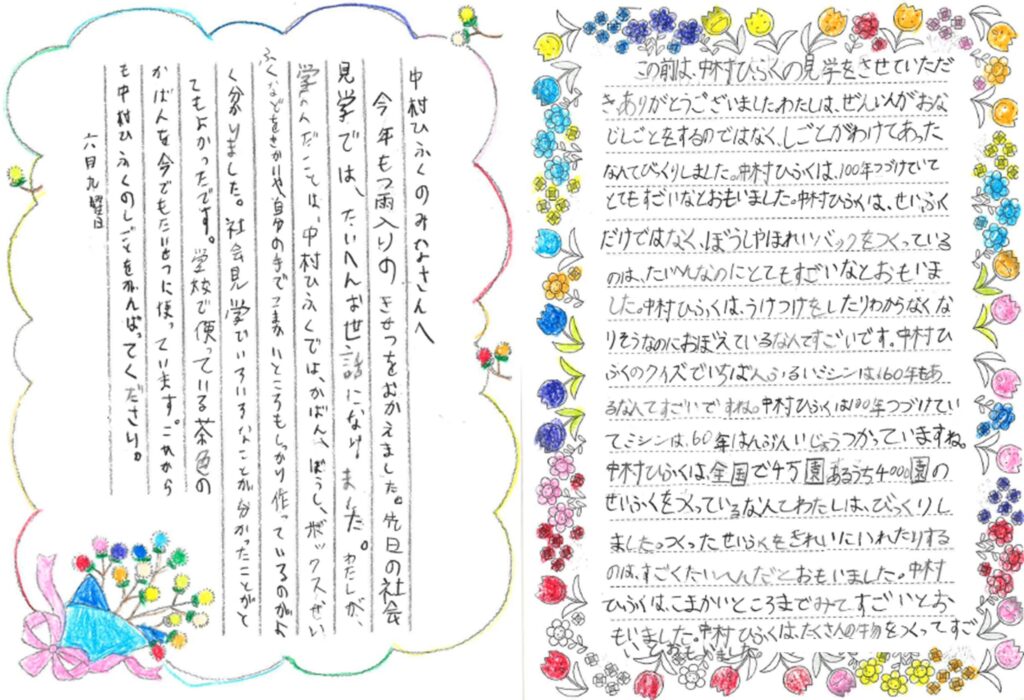 中村ひふくのみなさんへ
今年もつ雨入りのきせつをおかえました。先日の社会
見学では、たいへんお世話になりました。わたしが、
学んだことは、中村ひふくでは、かばん、ぼうし、ボックスせい
ふくなどをさかいや自分の手でこまかいところもしっかり作っているのがよ
く分りました。社会見学でいろいろなことが分かったことがと
てもよかったです。学校で使っている茶色の
かばんを今でもたいせつに使っています。これから
も中村ひふくのしごとをがんばってください。
六月九曜日
この前は、中村ひふくの見学をさせていただ
きありがとうございましたわたしは、ぜんいんがおな
じしごとをするのではなく、しごとがわけてあった
なんてびっくりしました。中村ひふくは、100年つづけていて
とてもすごいなとおもいました。中村ひふくは、せいふく
だけではなく、ぼうしやほれいバックをつくっている
のは、たいへんなのにとてもすごいなとおもいま
した。中村ひふくは、うけつけをしたりわからなくな
りそうなのにおぼえているなんてすごいです。中村ひ
ふくのクイズでいちばんふるいミシンは160年もあ
るなんてすごいですね。中村ひふくは100年つづけてい
てミシンは、60年はんぶんいじょうつかっていますね。
中村ひふくは、全国で4万園あるうち4000園の
せいふくをつくっているなんてわたしは、びっくりし
ました。つくったせいふくをきれいにいれたりする
のは、すごくたいへんだとおもいました。中村
ひふくは、こまかいところまでみてすごいとお
もいました。中村ひふくは、たくさんの物をつくってすご
いとおもいました。